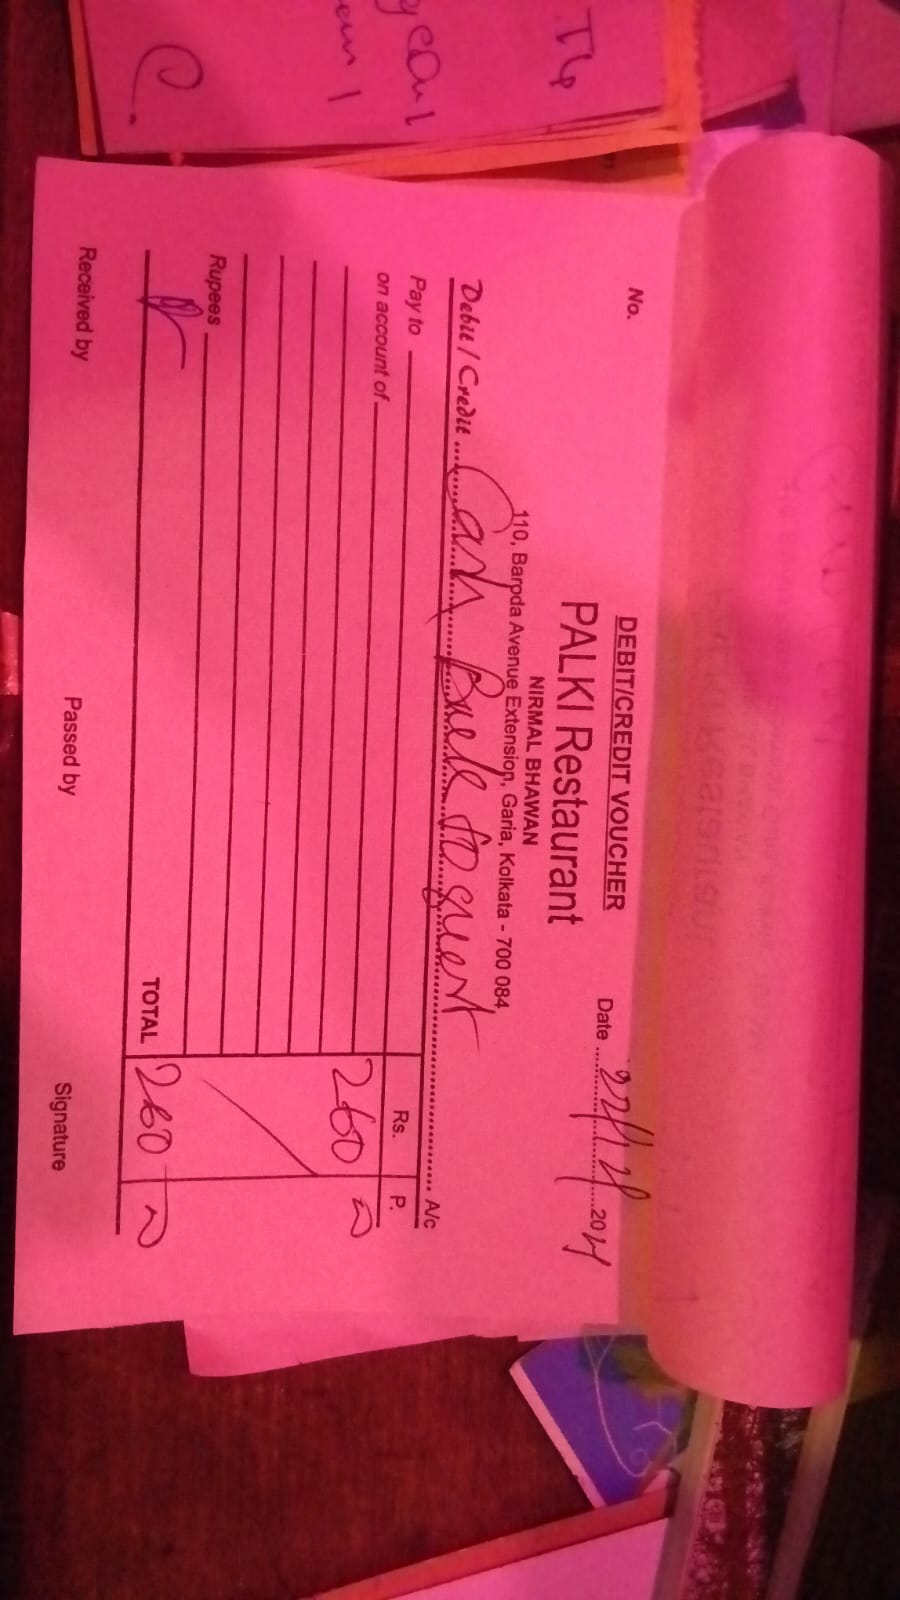 DEBIT/CREDIT VOUCHER
No.
Date
PALKI Restaurant
NIRMAL BHAWAN
110, Baroda Avenue Extension, Garia, Kolkata - 700 084,
Debit / Credit Cash Back to guest A/c
Pay to Rs. P.
on account of
260
Rupees
TOTAL 260
Received by Passed by Signature